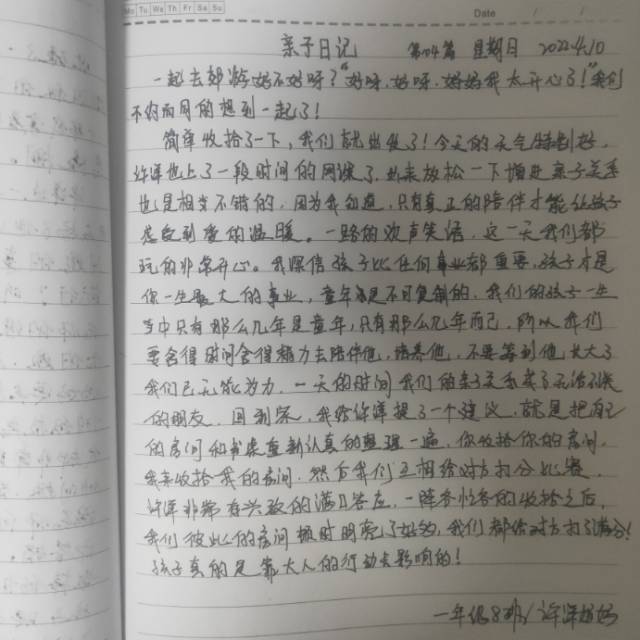 Mo Tu We Th Fr Sa Su
Date / /
亲子日记 第四篇 星期日 2022.4.10
一起去郊游好不好呀?"好呀,好呀,妈妈我太开心了!"我们
不约而同的想到一起了!
简单收拾了一下,我们就出发了!今天的天气特别好,
许洋也上了一段时间的网课了,出来放松一下增进亲子关系
也是相当不错的,因为我知道,只有真正的陪伴才能让孩子
感受到爱的温暖。一路的欢声笑语,这一天我们都
玩的非常开心。我深信孩子比任何事业都重要,孩子才是
你一生最大的事业,童年是不可复制的,我们的孩子一生
当中只有那么几年是童年,只有那么几年而已,所以我们
要舍得时间舍得精力去陪伴他,培养他,不要等到他长大了
我们已无能为力,一天的时间我们的亲子关系成了无话不谈
的朋友,回到家,我给许洋提了一个建议,就是把自己
的房间和书桌重新认真的整理一遍,你收拾你的房间,
我来收拾我的房间,然后我们互相给对方打分比赛,
许洋非常有兴致的满口答应,一阵子忙务的收拾之后,
我们彼此的房间顿时明亮了好多,我们都给对方打了满分!
孩子真的是靠大人的行动去影响的!
一年级8班/许洋妈妈